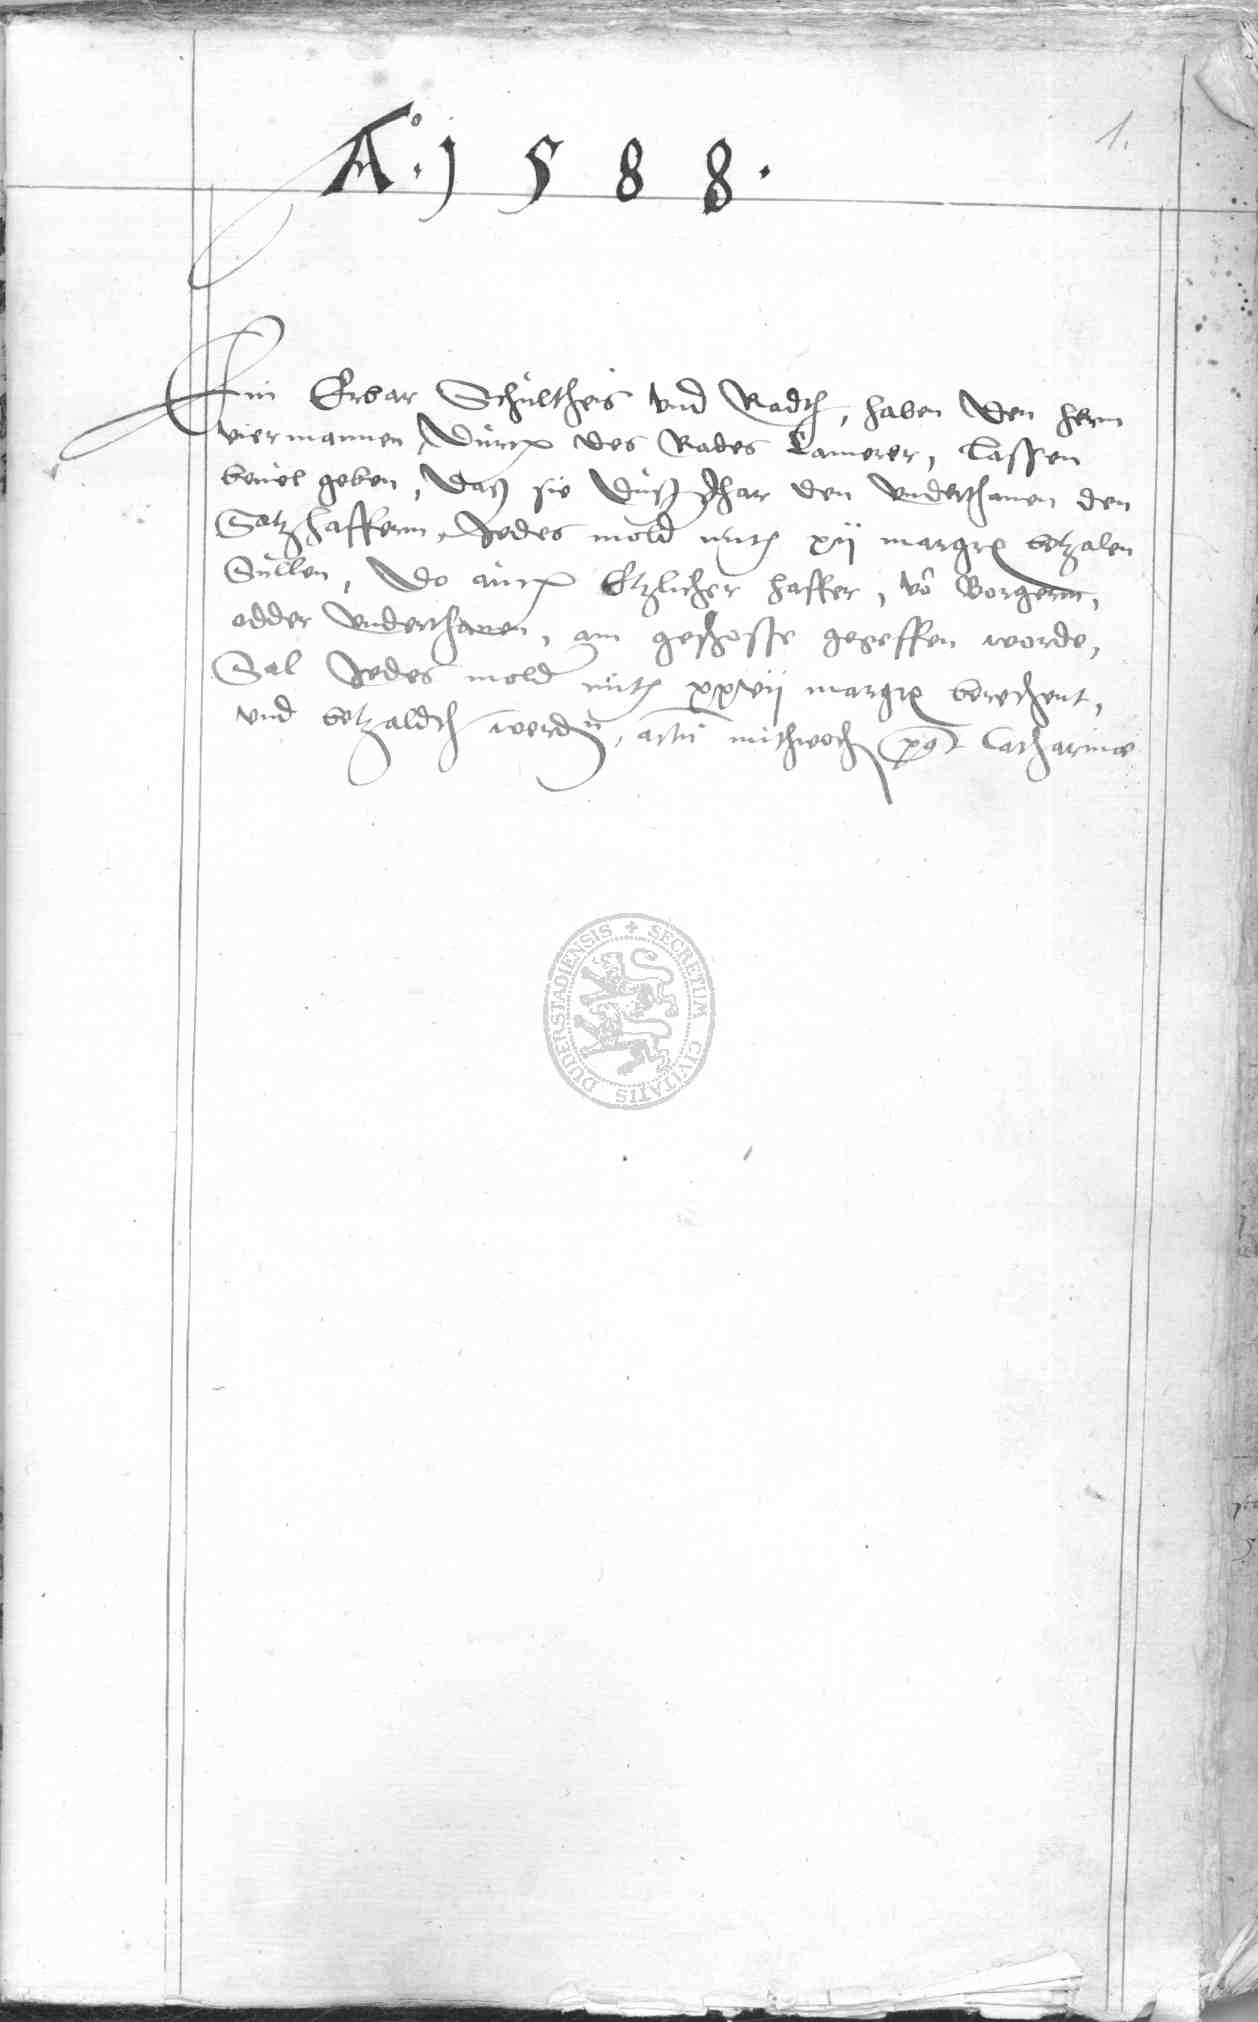 Ao. 1588.
1.
Ein Erbar Schultheis vnd Radth, haben den hern
viermannen, Durch des Rades Camerer, lassen
beuel geben, Das sie Duß Jhar den vnderthanen den
Satzhaffern, Jedes mold mit xij margk betzalen
Sullen, Do auch Etzlicher haffer, vo Borgern,
odder vnderthanen, am geschosse gegeffen worde,
Sal Jedes mold mit xxvij margk berechent,
vnd betzaldth werden, actu mithwoch post Catharinae
SECRETUM CIVITATIS DUDERSTADIENSIS